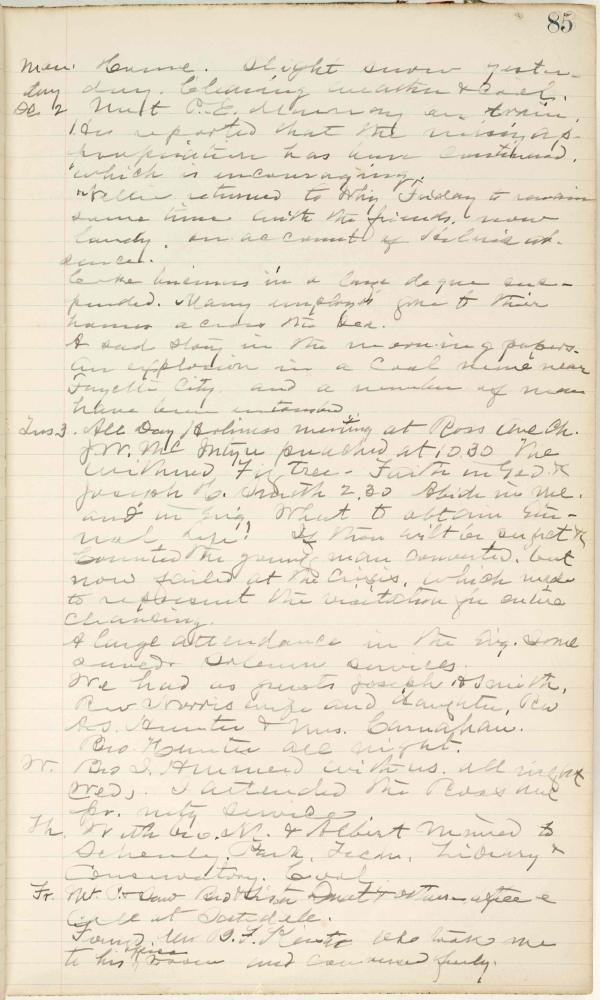 85
Mon. Home. Slight snow yester-
day day. Clearing weather & cool.
Dec 2 Met P. E. Murray on train.
He reported that the missy ap-
propriation has been continued.
which is encouraging.
Nellie returned to Friday to remain
some time with the friends. now
lonely. on account of ab-
sence.
Coke business in a large degree sus-
pended. Many employes gone to their
homes across the sea.
A sad story in the morning papers.
An explosion in a coal mine near
Fayette City. and a number of men
have been entombed.
Tues 3. All Day Holiness meeting at Ross Ave Ch.
J. W. McIntyre preached at 10.30 The
withered Fig tree - Faith in God &
Joseph H. Smith 2.30 Abide in Me.
and in Evg. What to obtain Eter-
nal Life!! If thou wilt be perfect &c
Counted the young man converted. but
now failed at the Crisis, which made
to represent the visitation for entire
cleansing.
A large attendance in the Evg. Some
saved. Solemn services.
We had as guests Joseph H Smith,
Rev Norris wife and daughter, Rev
A. S. Hunter & Mrs. Carnahan.
Bro. Hunter all night.
W. Bro S. with us. all night
Wed, I attended the Ross Ave
pr. mtg service
Th. With Geo. M. & Albert to
Schenly Park, Library &
Conservatory. Cool
Fr. Mt. P. Saw Bro & others office &
call at Scottdale.
Found Mr who took me
to his office room and conversed freely.